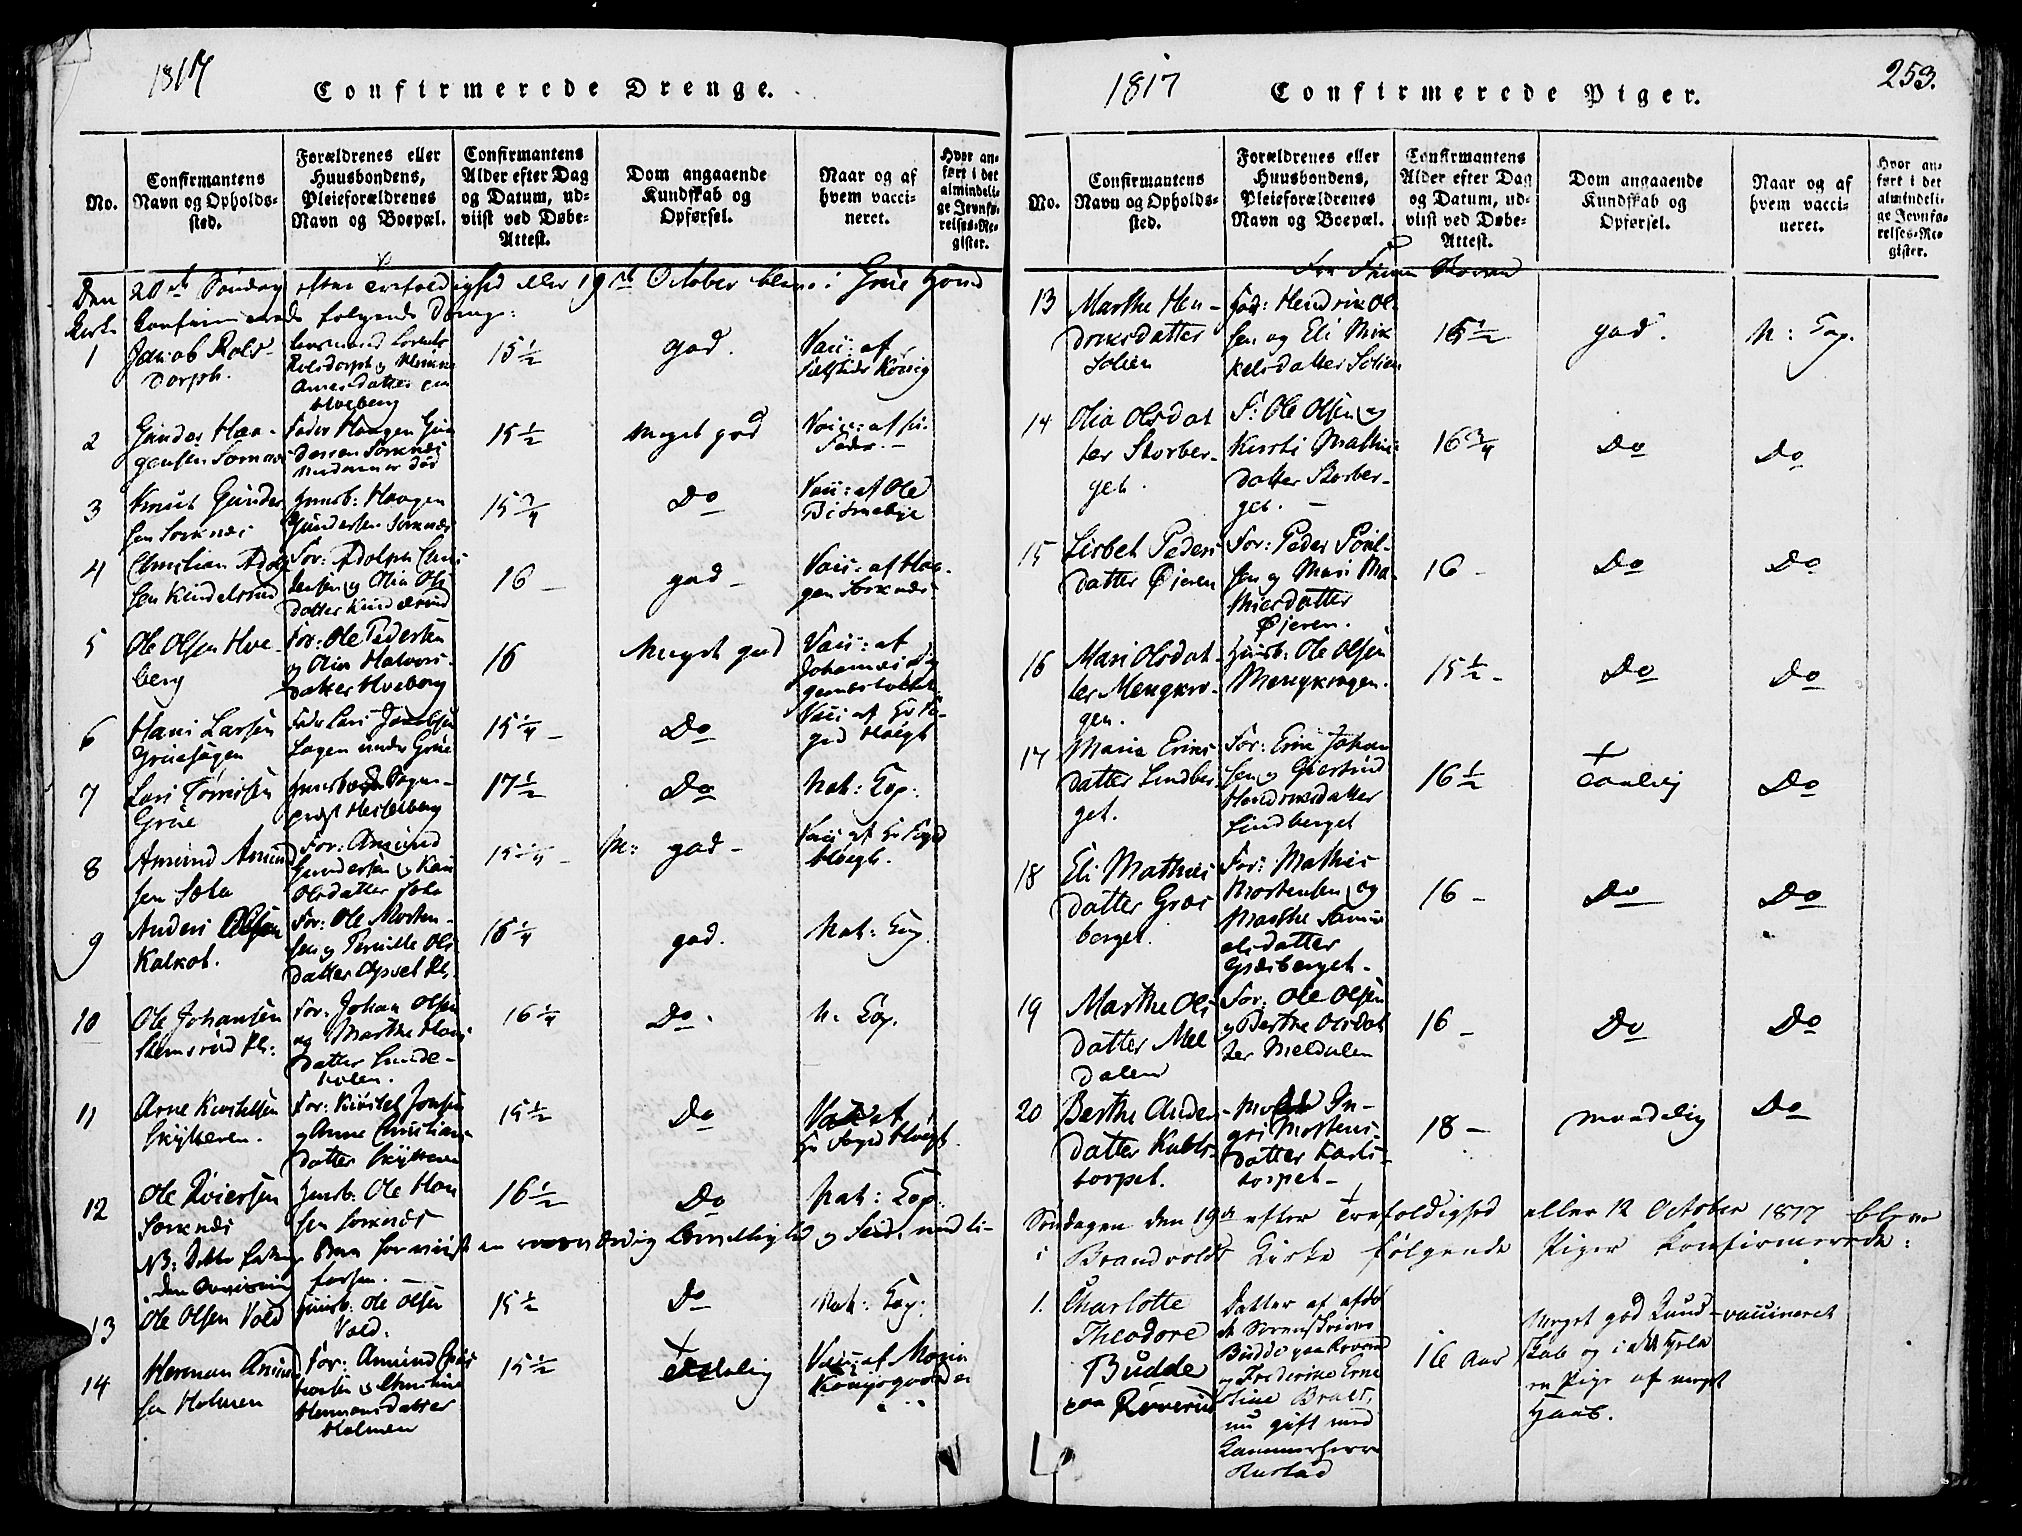 1817
Confirmerede Drenge.
No.
Confirmantens
Navn og Opholds-
sted.
Forældrenes eller
Huusbondens,
Pleieforældrenes
Navn og Boepæl.
Confirmantens
Alder efter Dag
og Datum, ud-
viist ved Døbe-
Attest.
Dom angaaende
Kundskab og
Opførsel.
Naar og af
hvem vacci-
neret.
Hvor an-
ført i det
almindeli-
ge Jevnfø-
relses-Re-
gister.
Den 20de Søndag efter Trefoldighed eller 19de October bleve i Grue Hoved
Kirke Confirmerede følgende Drenge:
1
Jakob Rols-
dorph.
15 1/2
god.
Vacc: af
2
Gunder Haa-
gensen Sorknæs
Fader Haagen Gun
dersen Sorknæs
Moderen er død
15 1/2
Meget god
Vacc: af sin
Fader. —
3
Knut Gunder
sen Sorknæs
Huusb: Haagen
Gundersen Sorknæs
15 3/4
Do
Vacc: af Ole
4
Christian Adol
sen Kindelsrud
For: Adolph Chris
tensen og Olia Ols
datter
16 —
god —
Vacc: af Haa-
gen Sorknæs
5
Ole Olsen Hve-
berg
For: Ole Pedersen
og Olia Halvors-
datter Hveberg
16
Meget god
Vacc: af
Johannes
6
Hans Larsen
Gruesagen
Fader Lars Jacobsen
Sagen under Grue
15 1/4 —
Do
Vacc af Hr Fo-
ged Høegh
7
Lars
Grue
Huusbond Sogne-
præst Hesselberg
17 1/2
Do
Nat: Kop:
8
Amund Amund
sen
For: Amund
Gundersen og Kari
Olsdatter
15 1/4 —
M: god —
Vacc af Hr Foged
Høegh.
9
Anders Olsen
Kalkot.
For: Ole Morten-
sen og Pernille Ols
datter
16 1/4
god.
Nat: Kop.
10
Ole Johansen
For: Johan Olsen
og Marthe Hans
datter Lunde-
16 1/4
Do.
N: Kop.
11
Arne Kristelsen
For: Kristel Jonsen
og Anne Christians
datter
15 1/2
Do
Hr Foged Høegh.
12
Ole
Sorknæs
Huusb: Ole Han
sen Sorknæs
16 1/2
Do
Nat: Kop.
NB: Dette
13
Ole Olsen Vold
Huusb: Ole Olsen
Vold.
15 1/2
Do
Nat: Kop:
14
Herman Amund
sen Holmen
For: Amund
og Christine
Hermansdatter
Holmen
15 1/2
Taalelig
Vacc: af
1817
Confirmerede Piger.
253.
No.
Confirmantens
Navn og Opholds-
sted.
Forældrenes eller
Huusbondens,
Pleieforældrenes
Navn og Boepæl.
Confirmantens
Alder efter Dag
og Datum, ud-
viist ved Døbe-
Attest.
Dom angaaende
Kundskab og
Opførsel.
Naar og af
hvem vacci-
neret.
Hvor an-
ført i det
almindeli-
ge Jevnfø-
relses-Re-
gister.
13
Marthe Hen-
driksdatter
Solien
For: Hendrik Ol
sen og Eli Mik
kelsdatter Solien
15 1/2
god.
N: Kop.
14
Olia Olsdat
ter Storber-
get.
F: Ole Olsen og
Kersti Mathis
datter Storber-
get. —
16 3/4
Do
Do
15
Lisbet Peders
datter Øieren
For: Peder Poul-
sen og Mari Ma-
thiesdatter
Øieren.
16 —
Do
Do
16
Mari Olsdat-
ter Mengkro-
gen.
Huusb: Ole Olsen
Mengkrogen.
15 1/2 —
Do
Do
17
Maria Eriks
datter Lindber
get.
For: Erik Johan
sen og Giertrud
Hendriksdatter
Lindberget
16 1/2
Taalelig
Do
18
Eli Mathis
datter Græs
berget.
For: Mathis
Mortensen og
Marthe Samu
elsdatter
Græsberget —
16 —
Do
Do
19
Marthe Ols
datter Mel
dalen
For: Ole Olsen
og Berthe Olsdat
ter Meldalen
16 —
Do
Do
20
Berthe Anders
datter Karls-
torpet.
Moder In-
gri Mortens-
datter Karls-
torpet —
18 —
maadelig
Do
Søndagen den 19de efter Trefoldighed eller 12 October 1817 bleve
i Brandvolds Kirke følgende Piger Konfirmerede:
1.
Charlotte
Theodore
Budde
paa Roverud
Datter af afdø
de Sorenskriver
Budde paa Roverud
og Frederike Erne
stine
nu gift med
Kammerherre
16 Aar
Meget god Kund-
skab og i alt Hele
en Pige af meget
Haab.
vaccineret